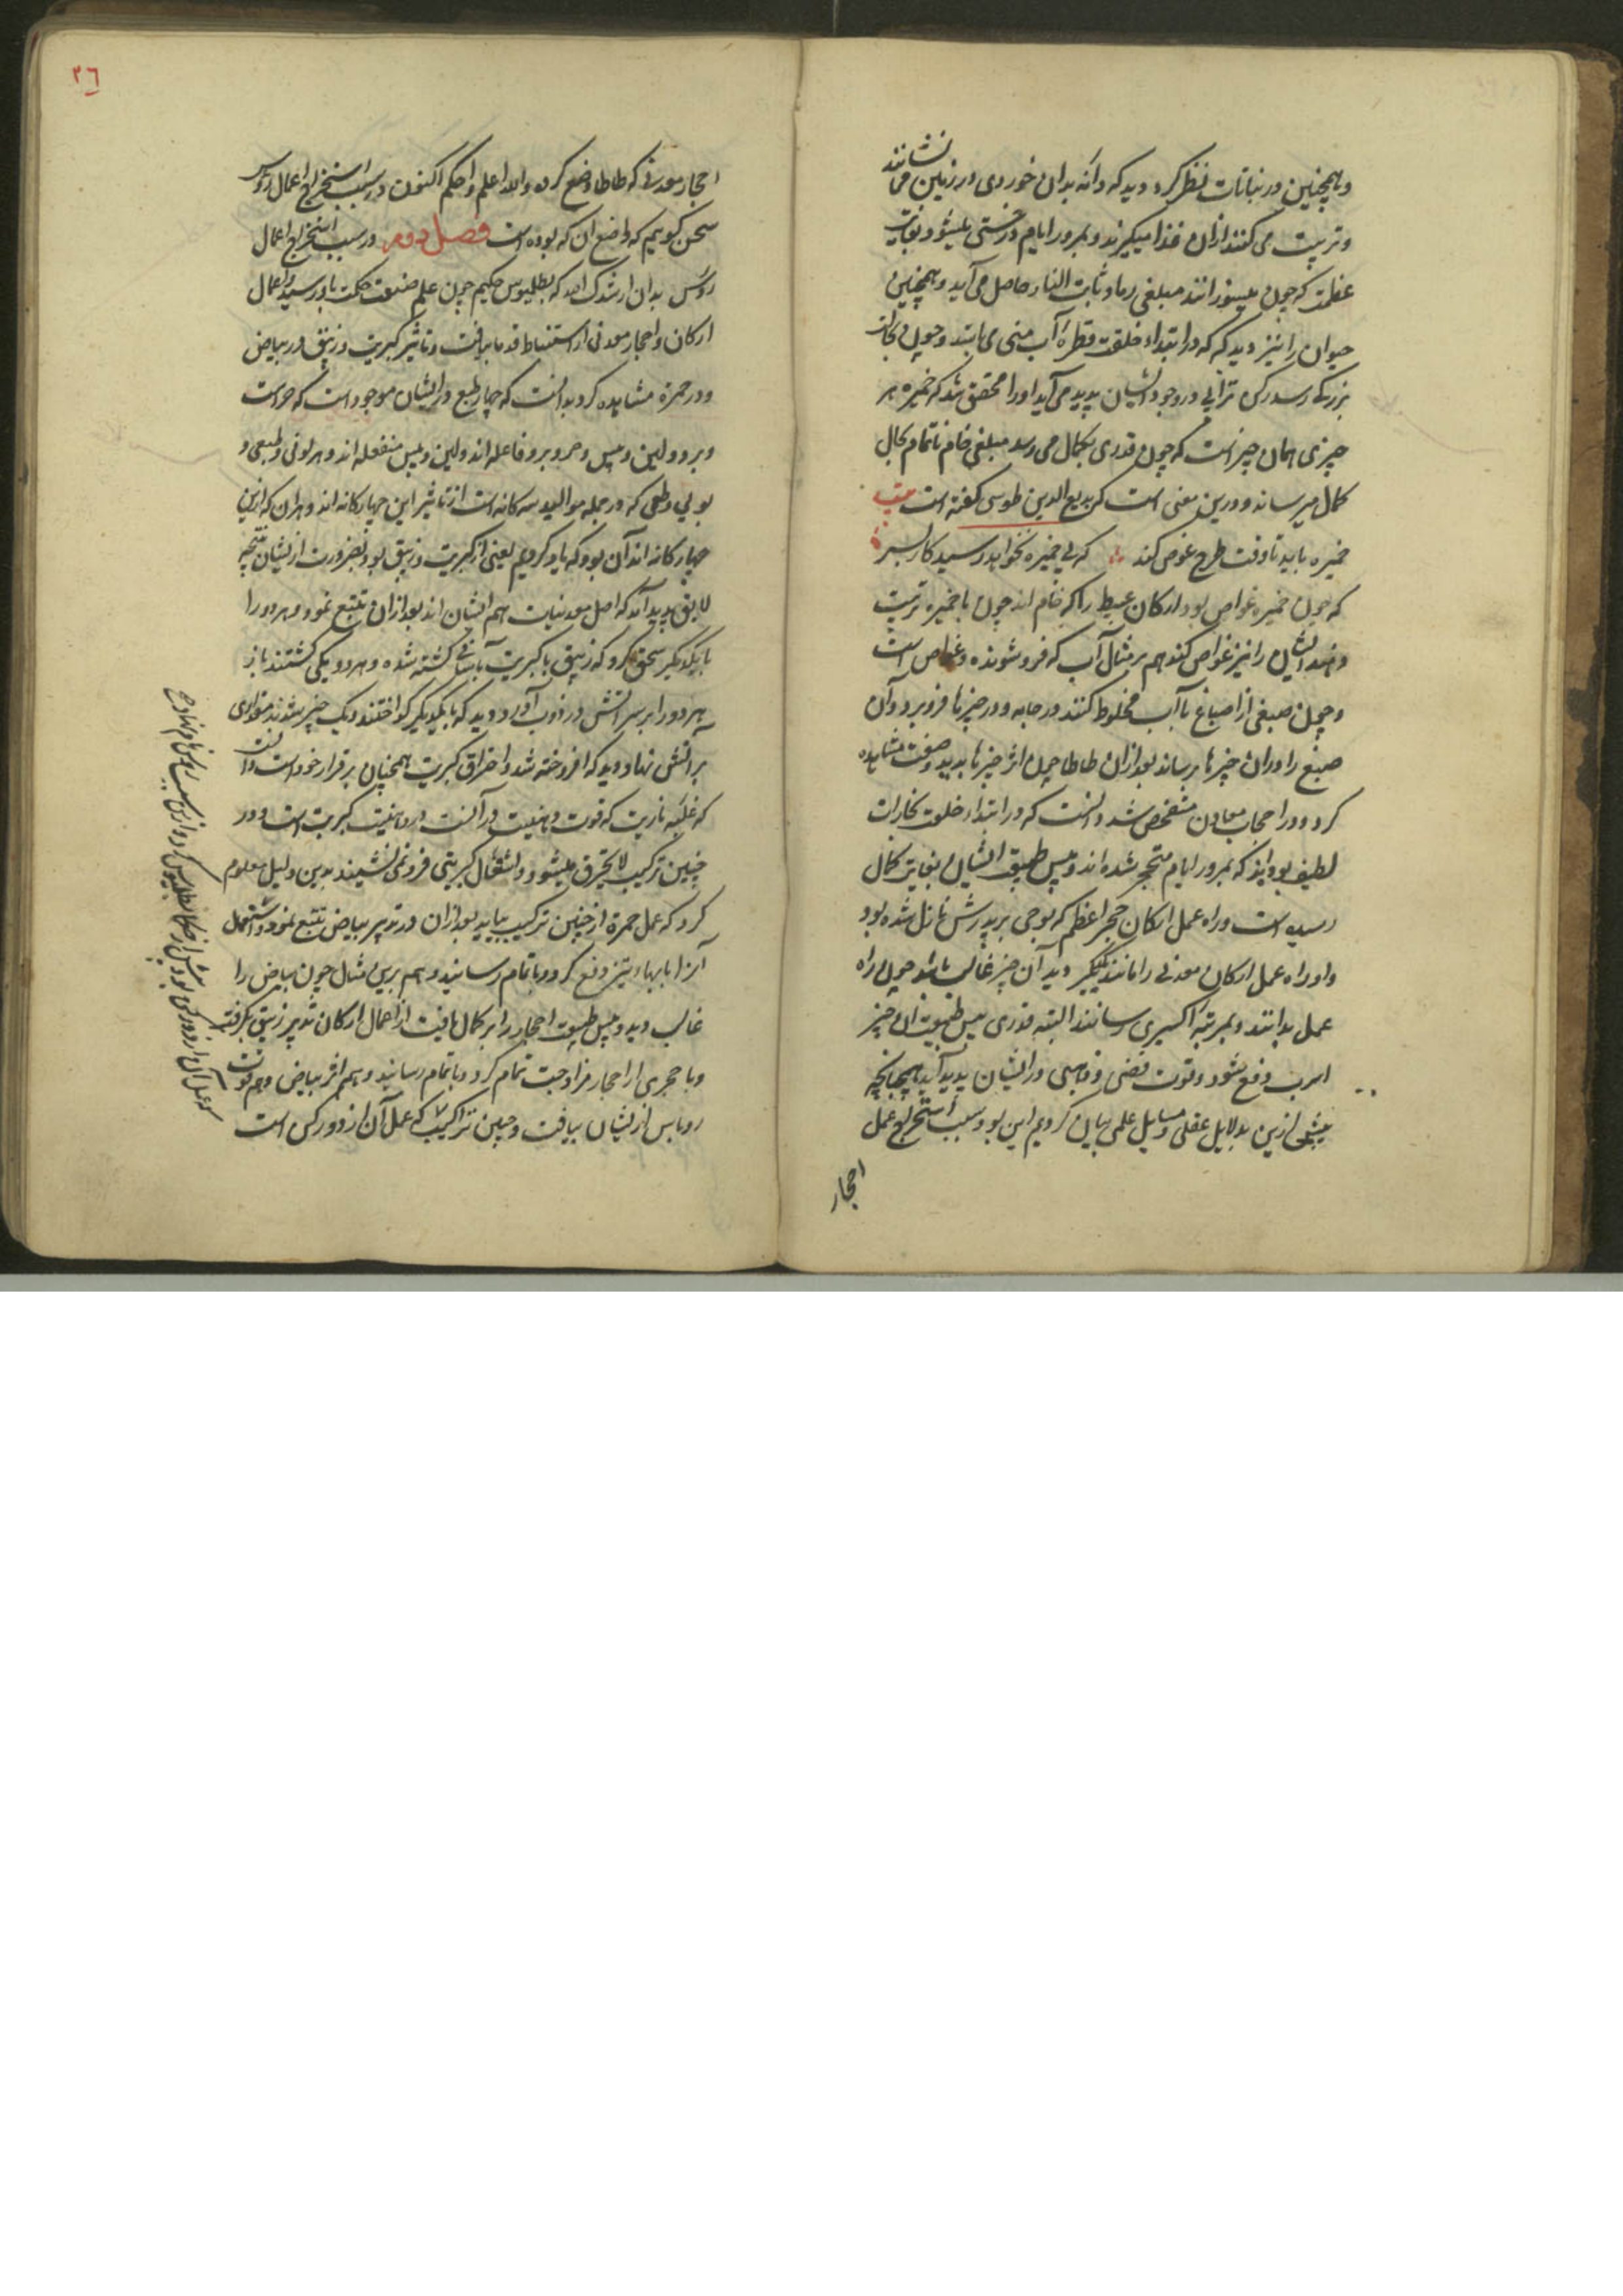 وهمچنین در نباتات نظر کرد و دید که دانه بدان خوردی در زمین می نشانند
و تربیت می کنند از ان غذا میگیرند و بمرور ایام درختی میشود بغایت
عظمت که چون میسوزانند مبلغی رماد ثابت النار حاصل می آید و همچنین
حیوان را نیز دید که که در ابتداء خلقت قطرهٔ آب منی می باشد و چون
بزرگی رسد ترابی در وجود ایشان پدید می آید او را محقق شد که خمیره هر
چیزی همان چیز است که چون قدری بکمال می رسد مبلغی خام ناتمام بحال
کمال میرساند و درین معنی است که بدیع الدین طوسی گفته است بیت
خمیره باید تا وقت طرح غوص کند که بی خمیره نخواهد رسید کار بسر
که چون خمیره غواص بود ارکان عبیط را که خام اند چون با خمیره تربیت
دهند ایشان را نیز غواص کند هم بر مثال آب که فروشونده و غواص است
و چون صبغی از اصباغ با آب مخلوط کنند در جامه و در چیزها فرو برد و آن
صبغ را در ان چیزها برساند بعد از ان طاطا چون اثر چیزها بدید و صفت مشاهده
کرد و در احجار معادن متفحص شد دانست که در ابتداء خلقت بخارات
لطیف بوده اند که بمرور ایام متحجر شده اند و پس طبیعت ایشان بغایت کمال
رسیده است و راه عمل ارکان حجر اعظم که بوحی بر پدرش نازل شده بود
و او راه عمل ارکان معدنی را مانند یکدیگر دید آن چیز غالب باشد چون راه
عمل بدانند و بمرتبه اکسیری رسانند البته قدری یبس طبیعت ان چیز
اسرب دفع شود و قوت فضی و ذهبی در ایشان پدید آید همچنانچه
پیش ازین بدلایل عقلی و مسایل علمی بیان کردیم این بود سبب استخراج عمل
احجار
٢٦
احجار معدنی که طاطا وضع کرده والله اعلم و احکم اکنون در سبب استخراج اعمال روس
سخن گوییم که واضع ان که بوده است فصل دوم در سبب استخراج اعمال
روس بدان ارشدک الله که بطلمیوس حکیم چون علم صنعت حکمت بدو رسید و اعمال
ارکان و احجار معدنی از استنباط قدما بیافت و تاثیر کبریت و زیبق در بیاض
و در حمره مشاهده کرد بدانست که چهار طبع در ایشان موجود است که حرارت
و برد و لین و یبس و حر و برد فاعله اند و لین و یبس منفعله اند و هر لونی و طبعی و
بویی و طعمی که در جمله موالید سه کانه است از تاثیر این چهارکانه اند و هران که ازین
چهارکانه اند آن بود که یاد کردیم یعنی از کبریت و زیبق بود بضرورت از ایشان نتیجه
لایق پدید آید که اصل معدنیات هم ایشان اند بعد از ان تتبع نمود و هر دو را
با یکدیگر سحق کرد که زیبق با کبریت کشته شده و هر دو یکی گشتند باز
هر دو را بر سر آتش در ذوب آورد دید که با یکدیگر گداختند و یک چیز شدند
بر آتش نهاد دید که افروخته شد و احراق کبریت همچنان بر قرار خود است دانست
که غلبه ناریت که قوت دهنیت در آنست در ماهیت کبریت است و در
چنین ترکیب لا یحترق میشود و اشتعال کبریتی فرو نمی نشیند بدین دلیل معلوم
کرد که عمل حمره از چنین ترکیب بیاید بعد از ان در تدبیر بیاض تتبع نمود و اشتعال
آنرا بابهاء تیز دفع کرد و باتمام رسانید و هم برین مثال چون بیاض را
غالب دید و یبس طبیعت احجار را بر کمال یافت از اعمال ارکان تدبیر زیبق بگرفته
و با حجری از احجار مزاوجت تمام کرد و باتمام رسانید و هم اثر بیاض و هم قوت
روباس از ایشان بیافت و چنین تراکیب که عمل آن از دو رکن است